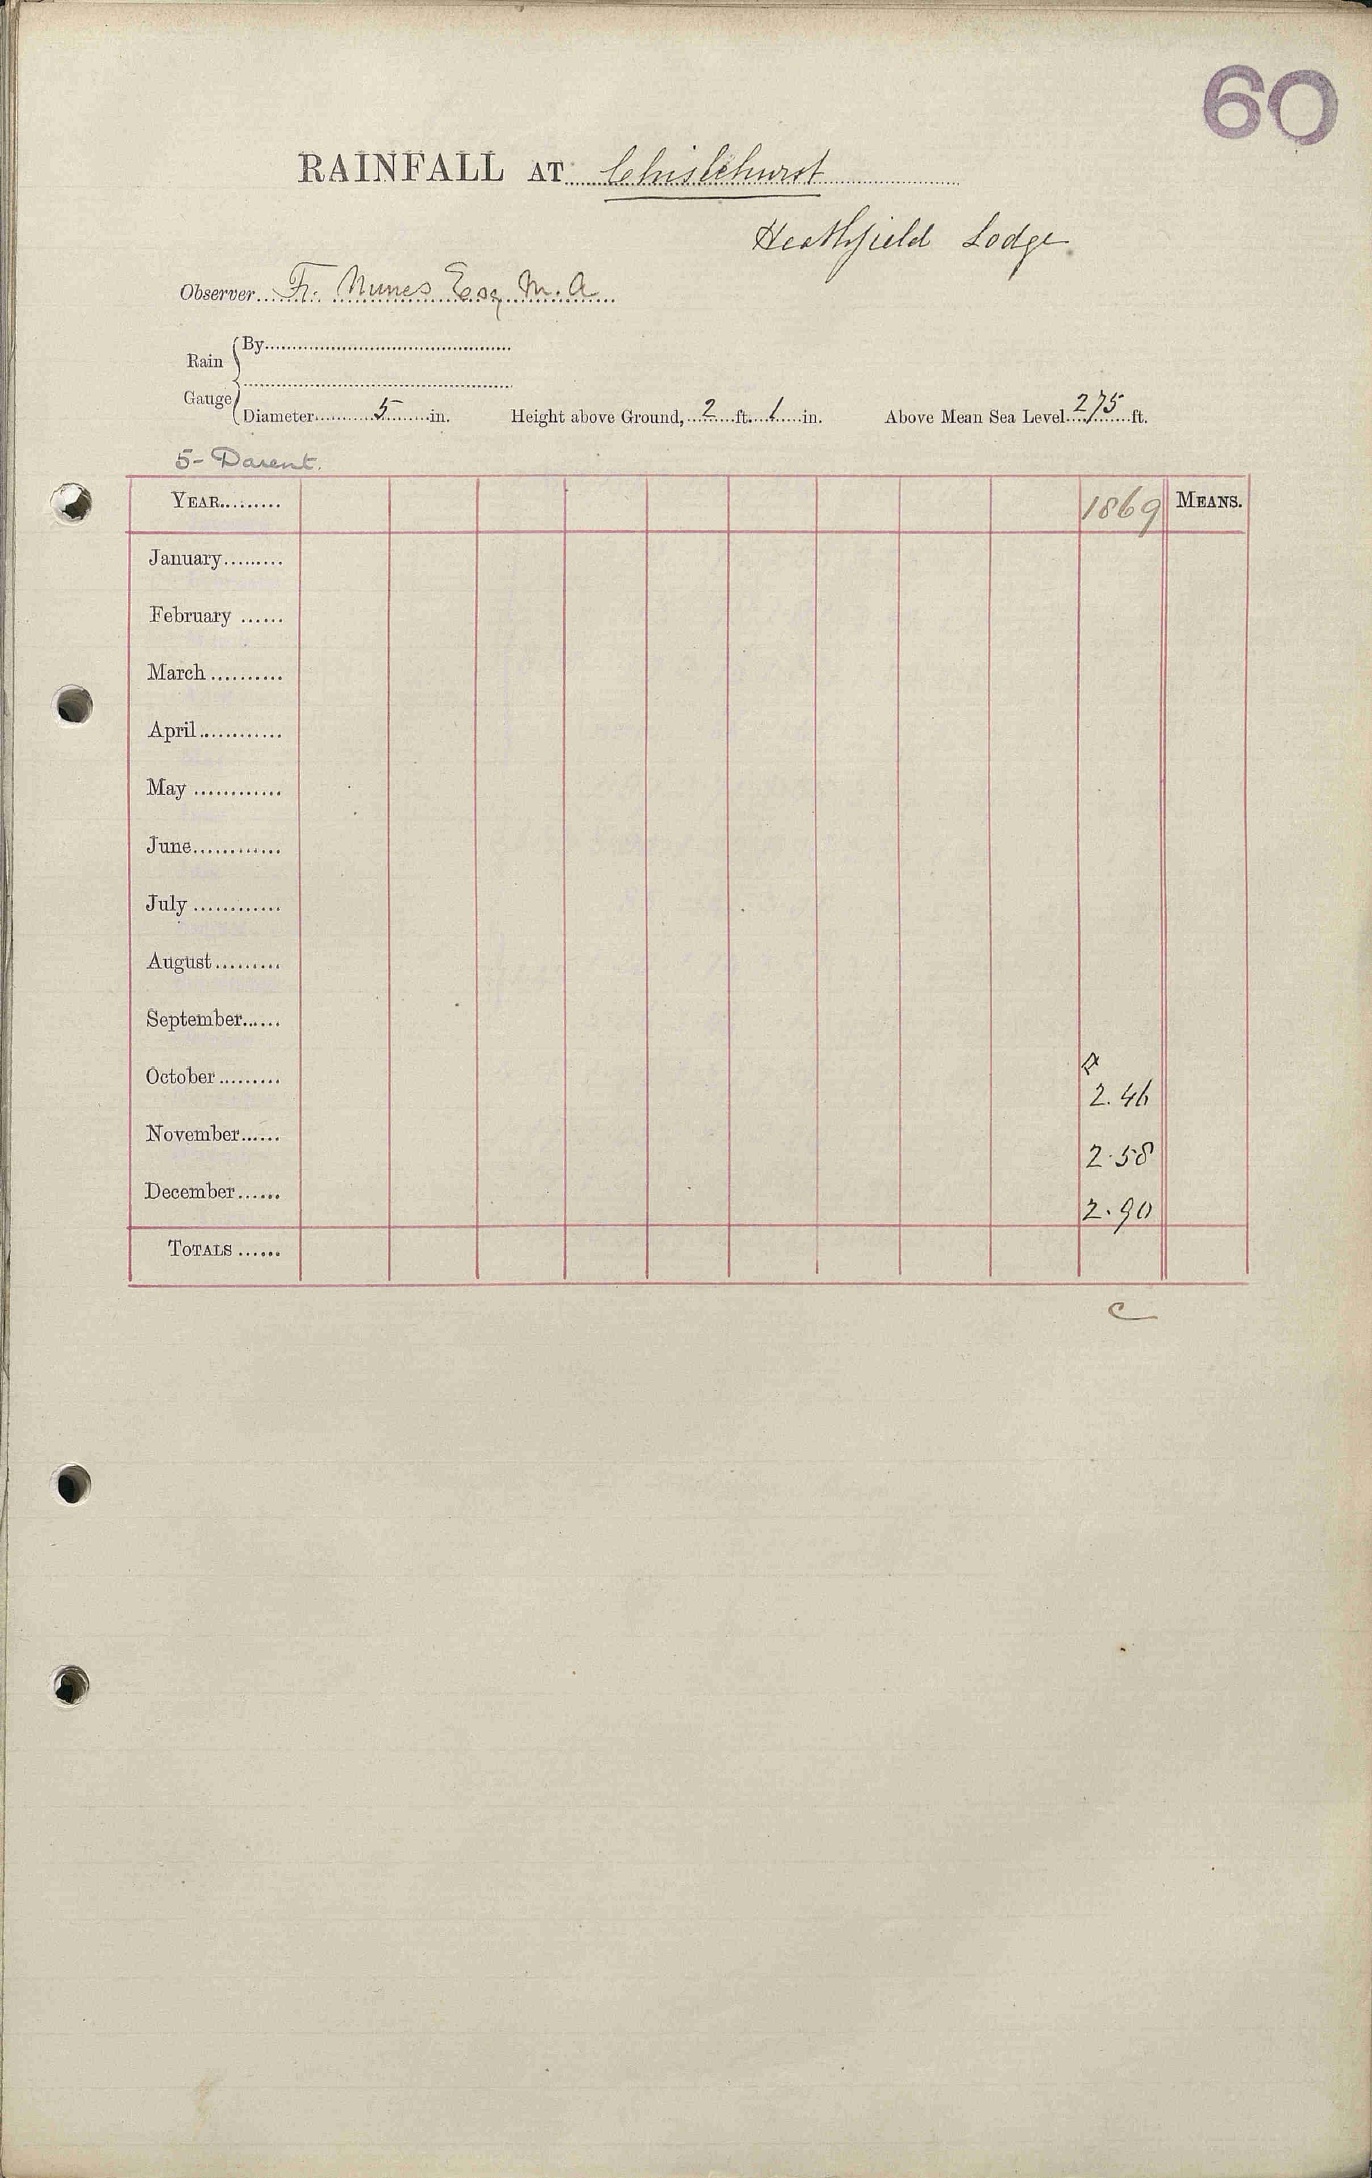 60
RAINFALL AT Chislehurst
Heathfield Lodge
Observer Fr. Nunes Esq M.A
Rain Gauge
By
Diameter 5 in. Height above Ground, 2 ft. 1 in. Above Mean Sea Level 275 ft.
5 - Darent.
YEAR 1869 MEANS.
January
February
March
April
May
June
July
August
September
October 2.46
November 2.58
December 2.90
TOTALS
C